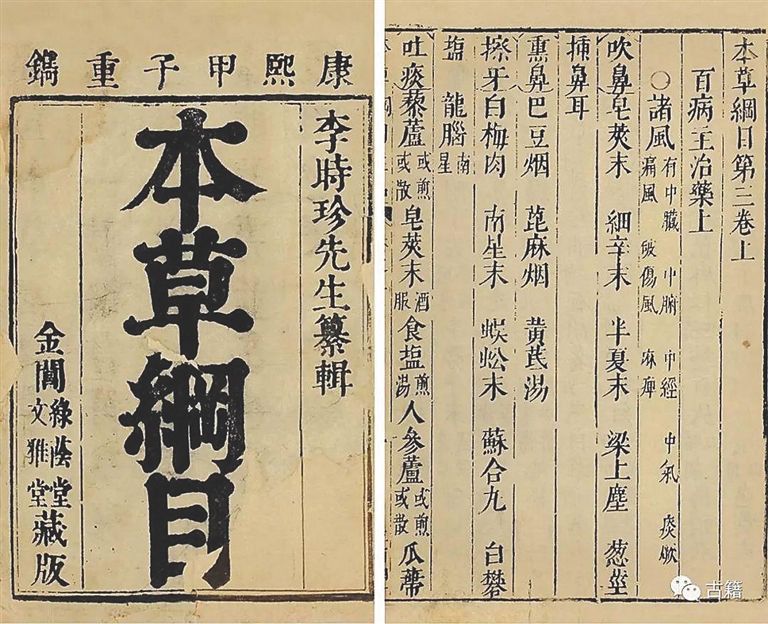 康熙甲子重鐫
李時珍先生纂輯
本草綱目
金閶綠蔭堂文雅堂藏版
本草綱目第三卷上
百病主治藥上
○諸風 有中臟 中腑 中經 中氣 痰厥
痛風 破傷風 麻痺
吹鼻皂莢末 細辛末 半夏末 梁上塵 葱莖
插鼻耳
熏鼻巴豆烟 萞麻烟 黄芪湯
擦牙白梅肉 南星末 蜈蚣末 蘇合丸 白礬
塩 龍腦南星
吐痰藜蘆或煎或散 皂莢末酒服 食塩煎湯 人參蘆或煎或散 瓜蒂
古籍